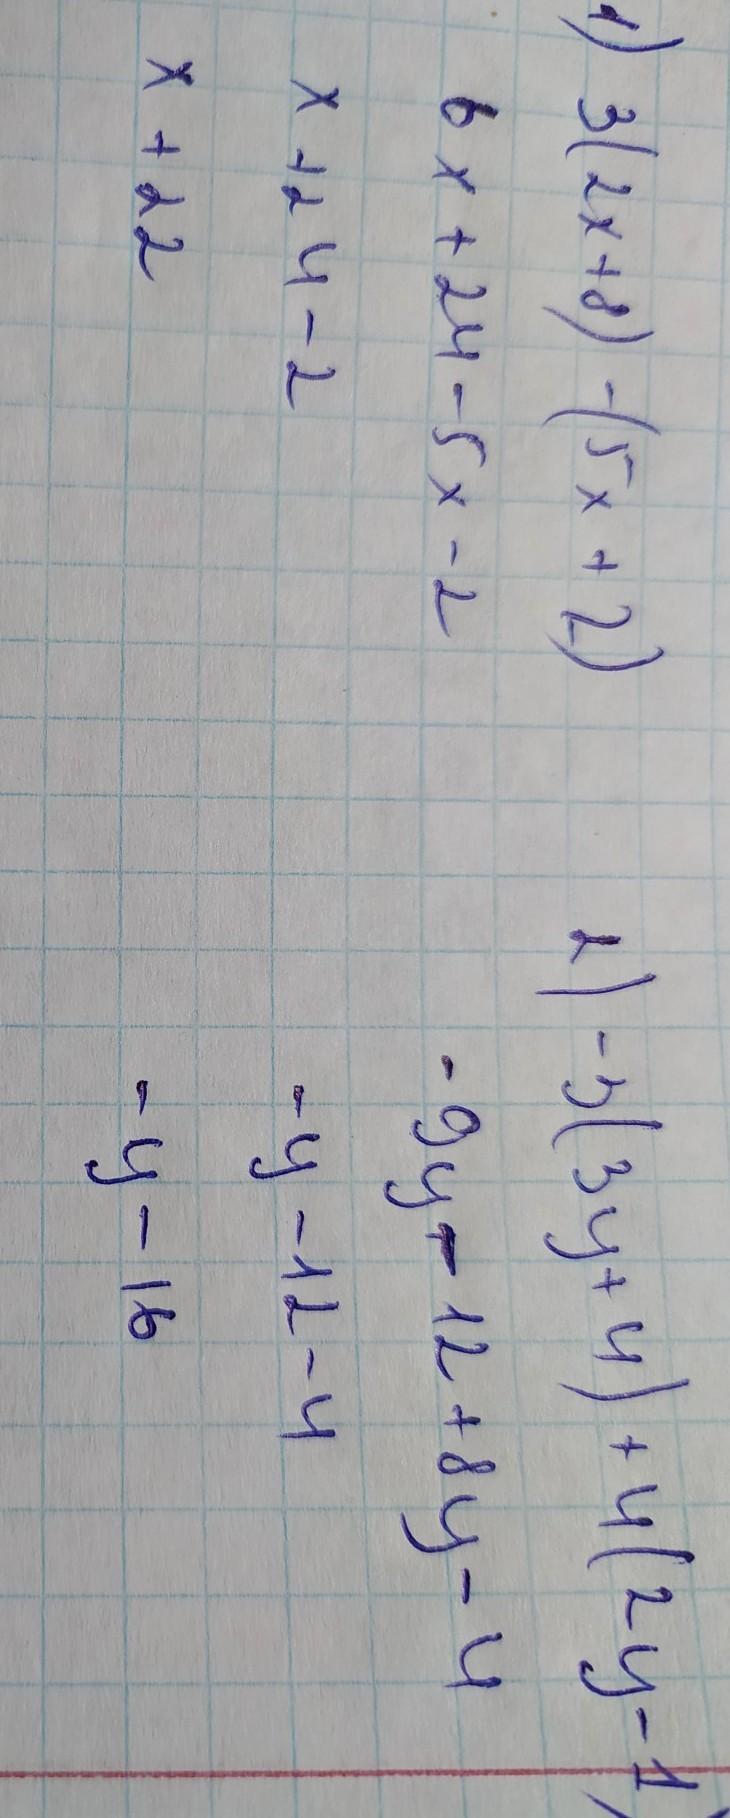 1) 3(2x+8) -(5x + 2)
6x + 24 - 5x - 2
x + 24 - 2
x + 22
2) -3(3y + 4) + 4(2y - 1)
-9y - 12 + 8y - 4
-y - 12 - 4
-y - 16